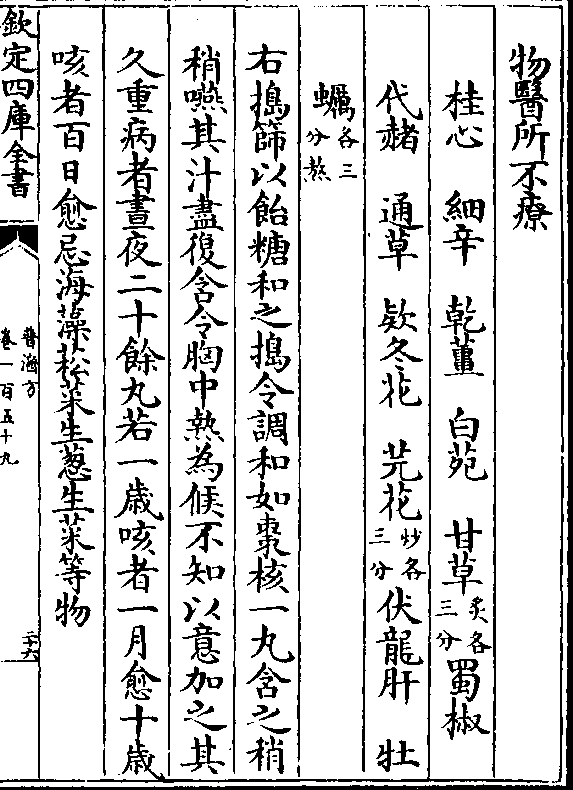 物醫所不療
桂心 細辛 乾薑 白苑 甘草炙各三分 蜀椒
代赭 通草 欵冬花 芫花炒各三分 伏龍肝 牡
蠣各三分熬
右搗篩以飴糖和之搗令調和如棗核一丸含之稍
稍嚥其汁盡復含令胸中熱為候不知以意加之其
久重病者晝夜二十餘丸若一歲咳者一月愈十歲
咳者百日愈忌海藻菘菜生葱生菜等物
欽定四庫全書
普濟方
卷一百五十九
二十六